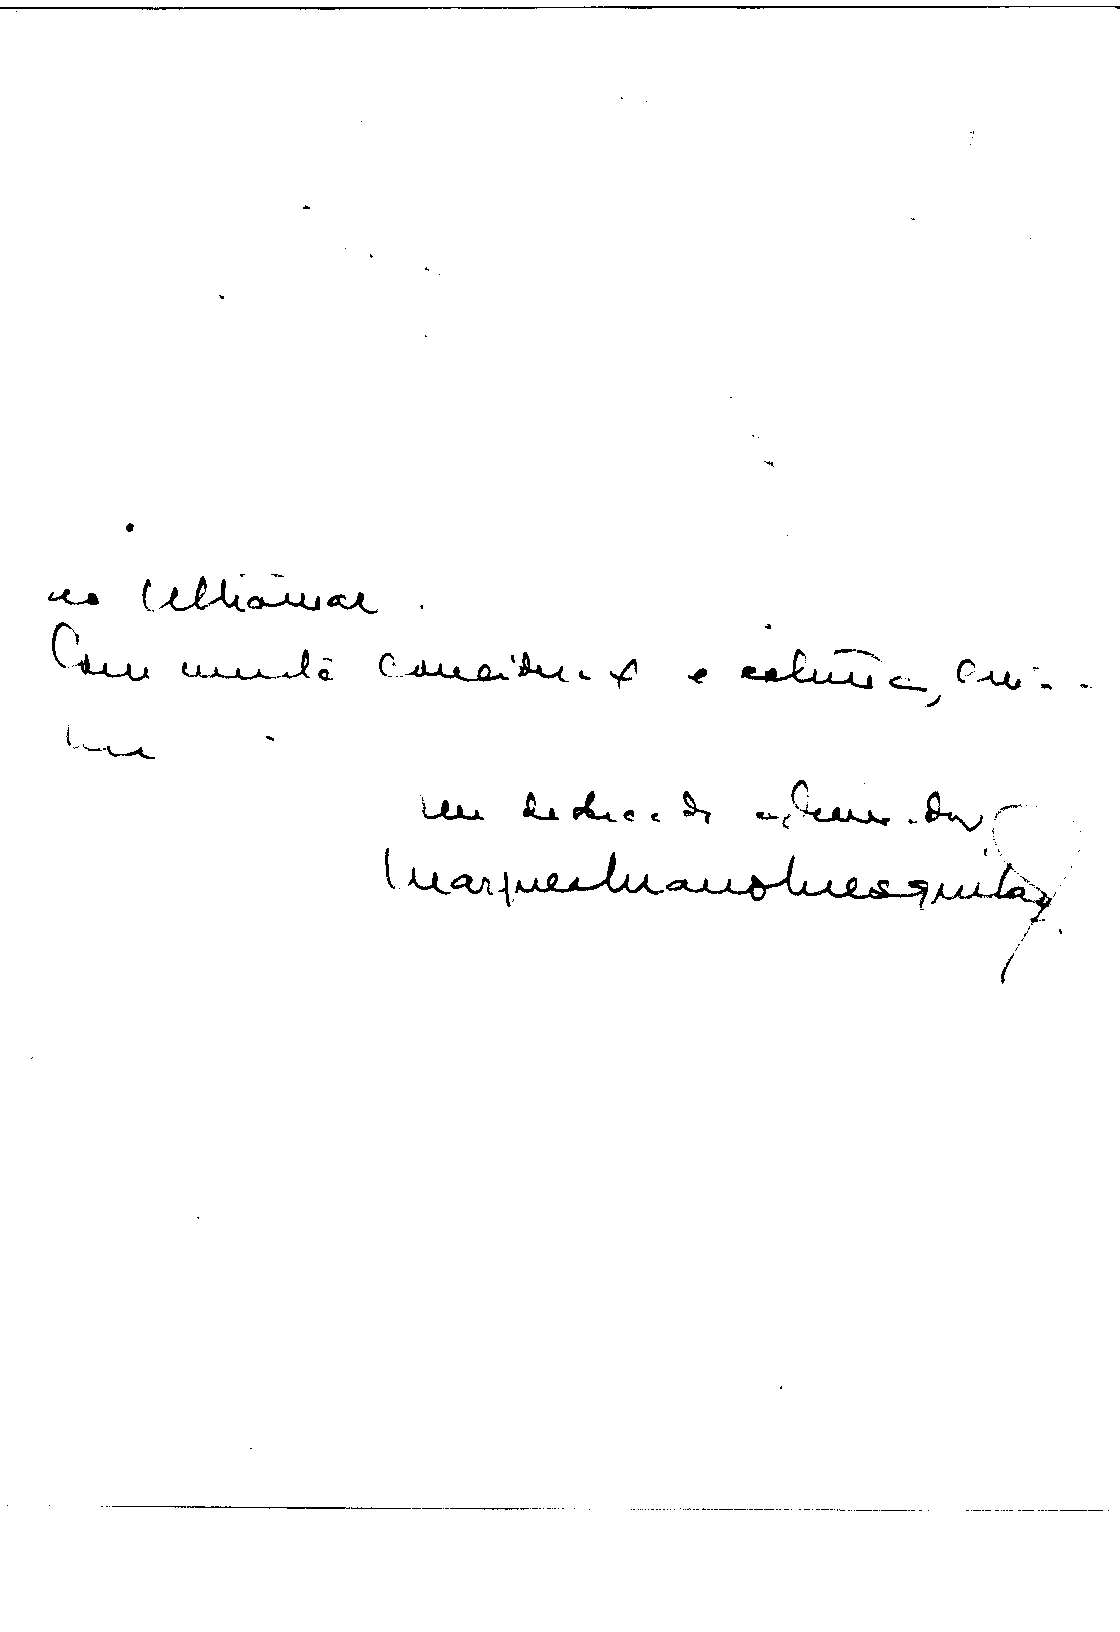 no Ultramar.
Com muita consideração e estima, sou
um dedicado admirador
Marques Mano Mesquita